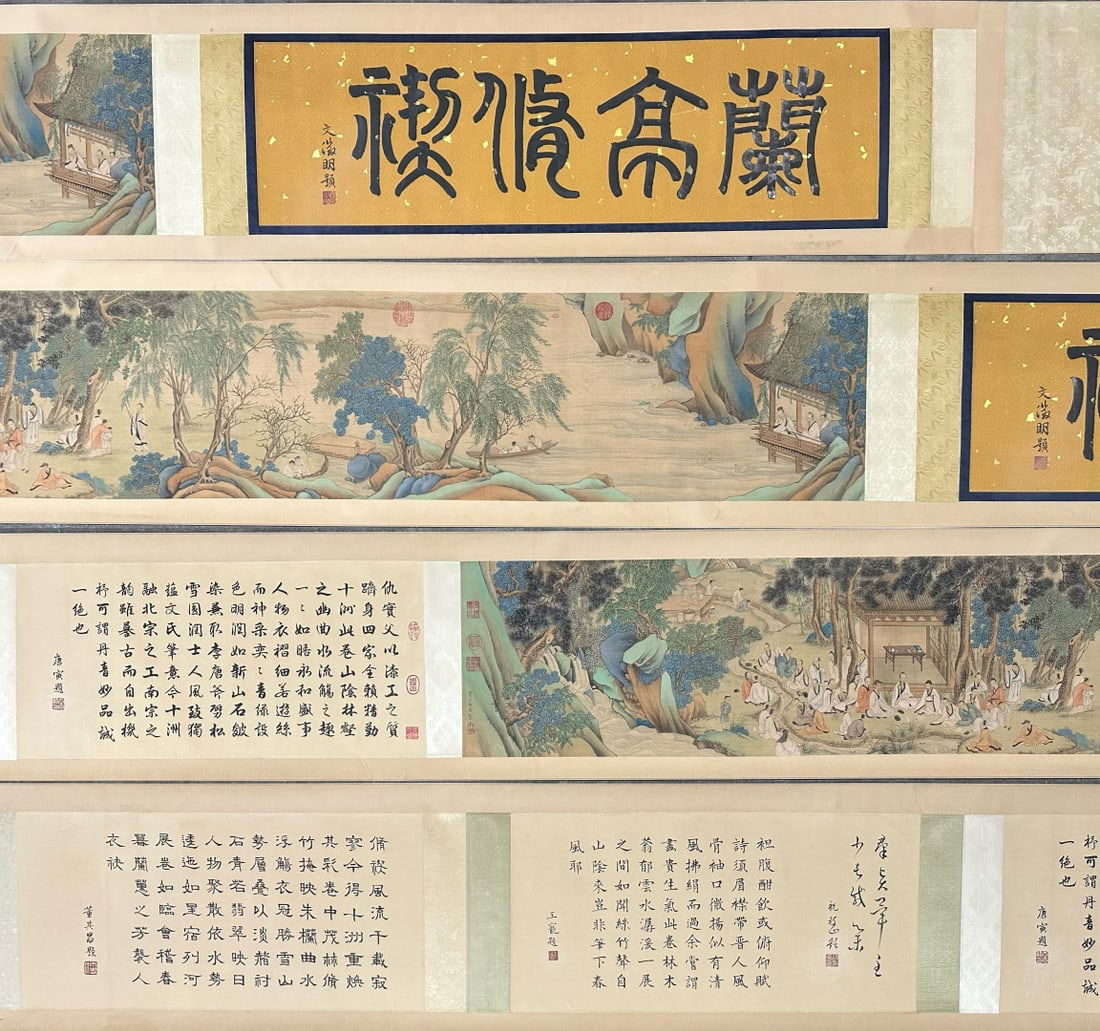 蘭亭脩禊
文徵明題
文徵明題
仇實父以漆工之質
躋身四家全賴精勤
十洲此卷山陰林壑
之幽曲水流觴之趣
一一如晤永和盛事
人物衣褶細若遊絲
而神采奕奕青綠設
色明潤如新山石皴
染兼取李唐斧劈松
雪圓潤士人風致獨
蘊文氏筆意今十洲
融北宗之工南宗之
韻雖摹古而自出機
杼可謂丹青妙品誠
一絕也
唐寅題
杼可謂丹青妙品誠
一絕也
唐寅題
羣賢畢至
少長咸集
祝題
袒腹酣飲或俯仰賦
詩須眉襟帶晉人風
骨袖口微揚似有清
風拂絹而過余嘗謂
畫貴生氣此卷林木
蓊郁雲水潺湲一展
之間如聞絲竹聲自
山陰來豈非筆下春
風耶
王寵題
脩禊風流千載寂
寥今得十洲重煥
其彩卷中茂林脩
竹掩映朱欄曲水
浮觴衣冠勝雪山
勢層疊以淡赭村
石青若翡翠映日
人物聚散依水勢
逶迤如星宿列河
展卷如臨會稽春
暮蘭蕙之芳襲人
衣袂
董其昌題